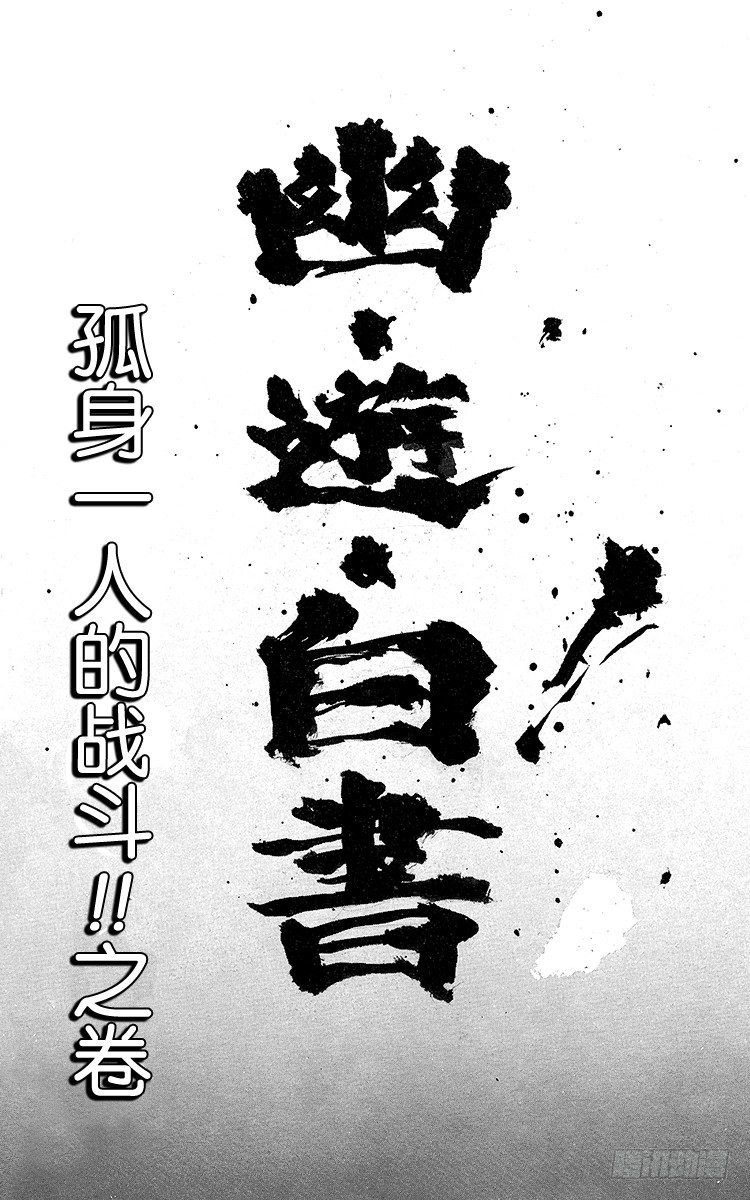 幽・遊・白書
孤身一人的战斗!!之卷
腾讯动漫